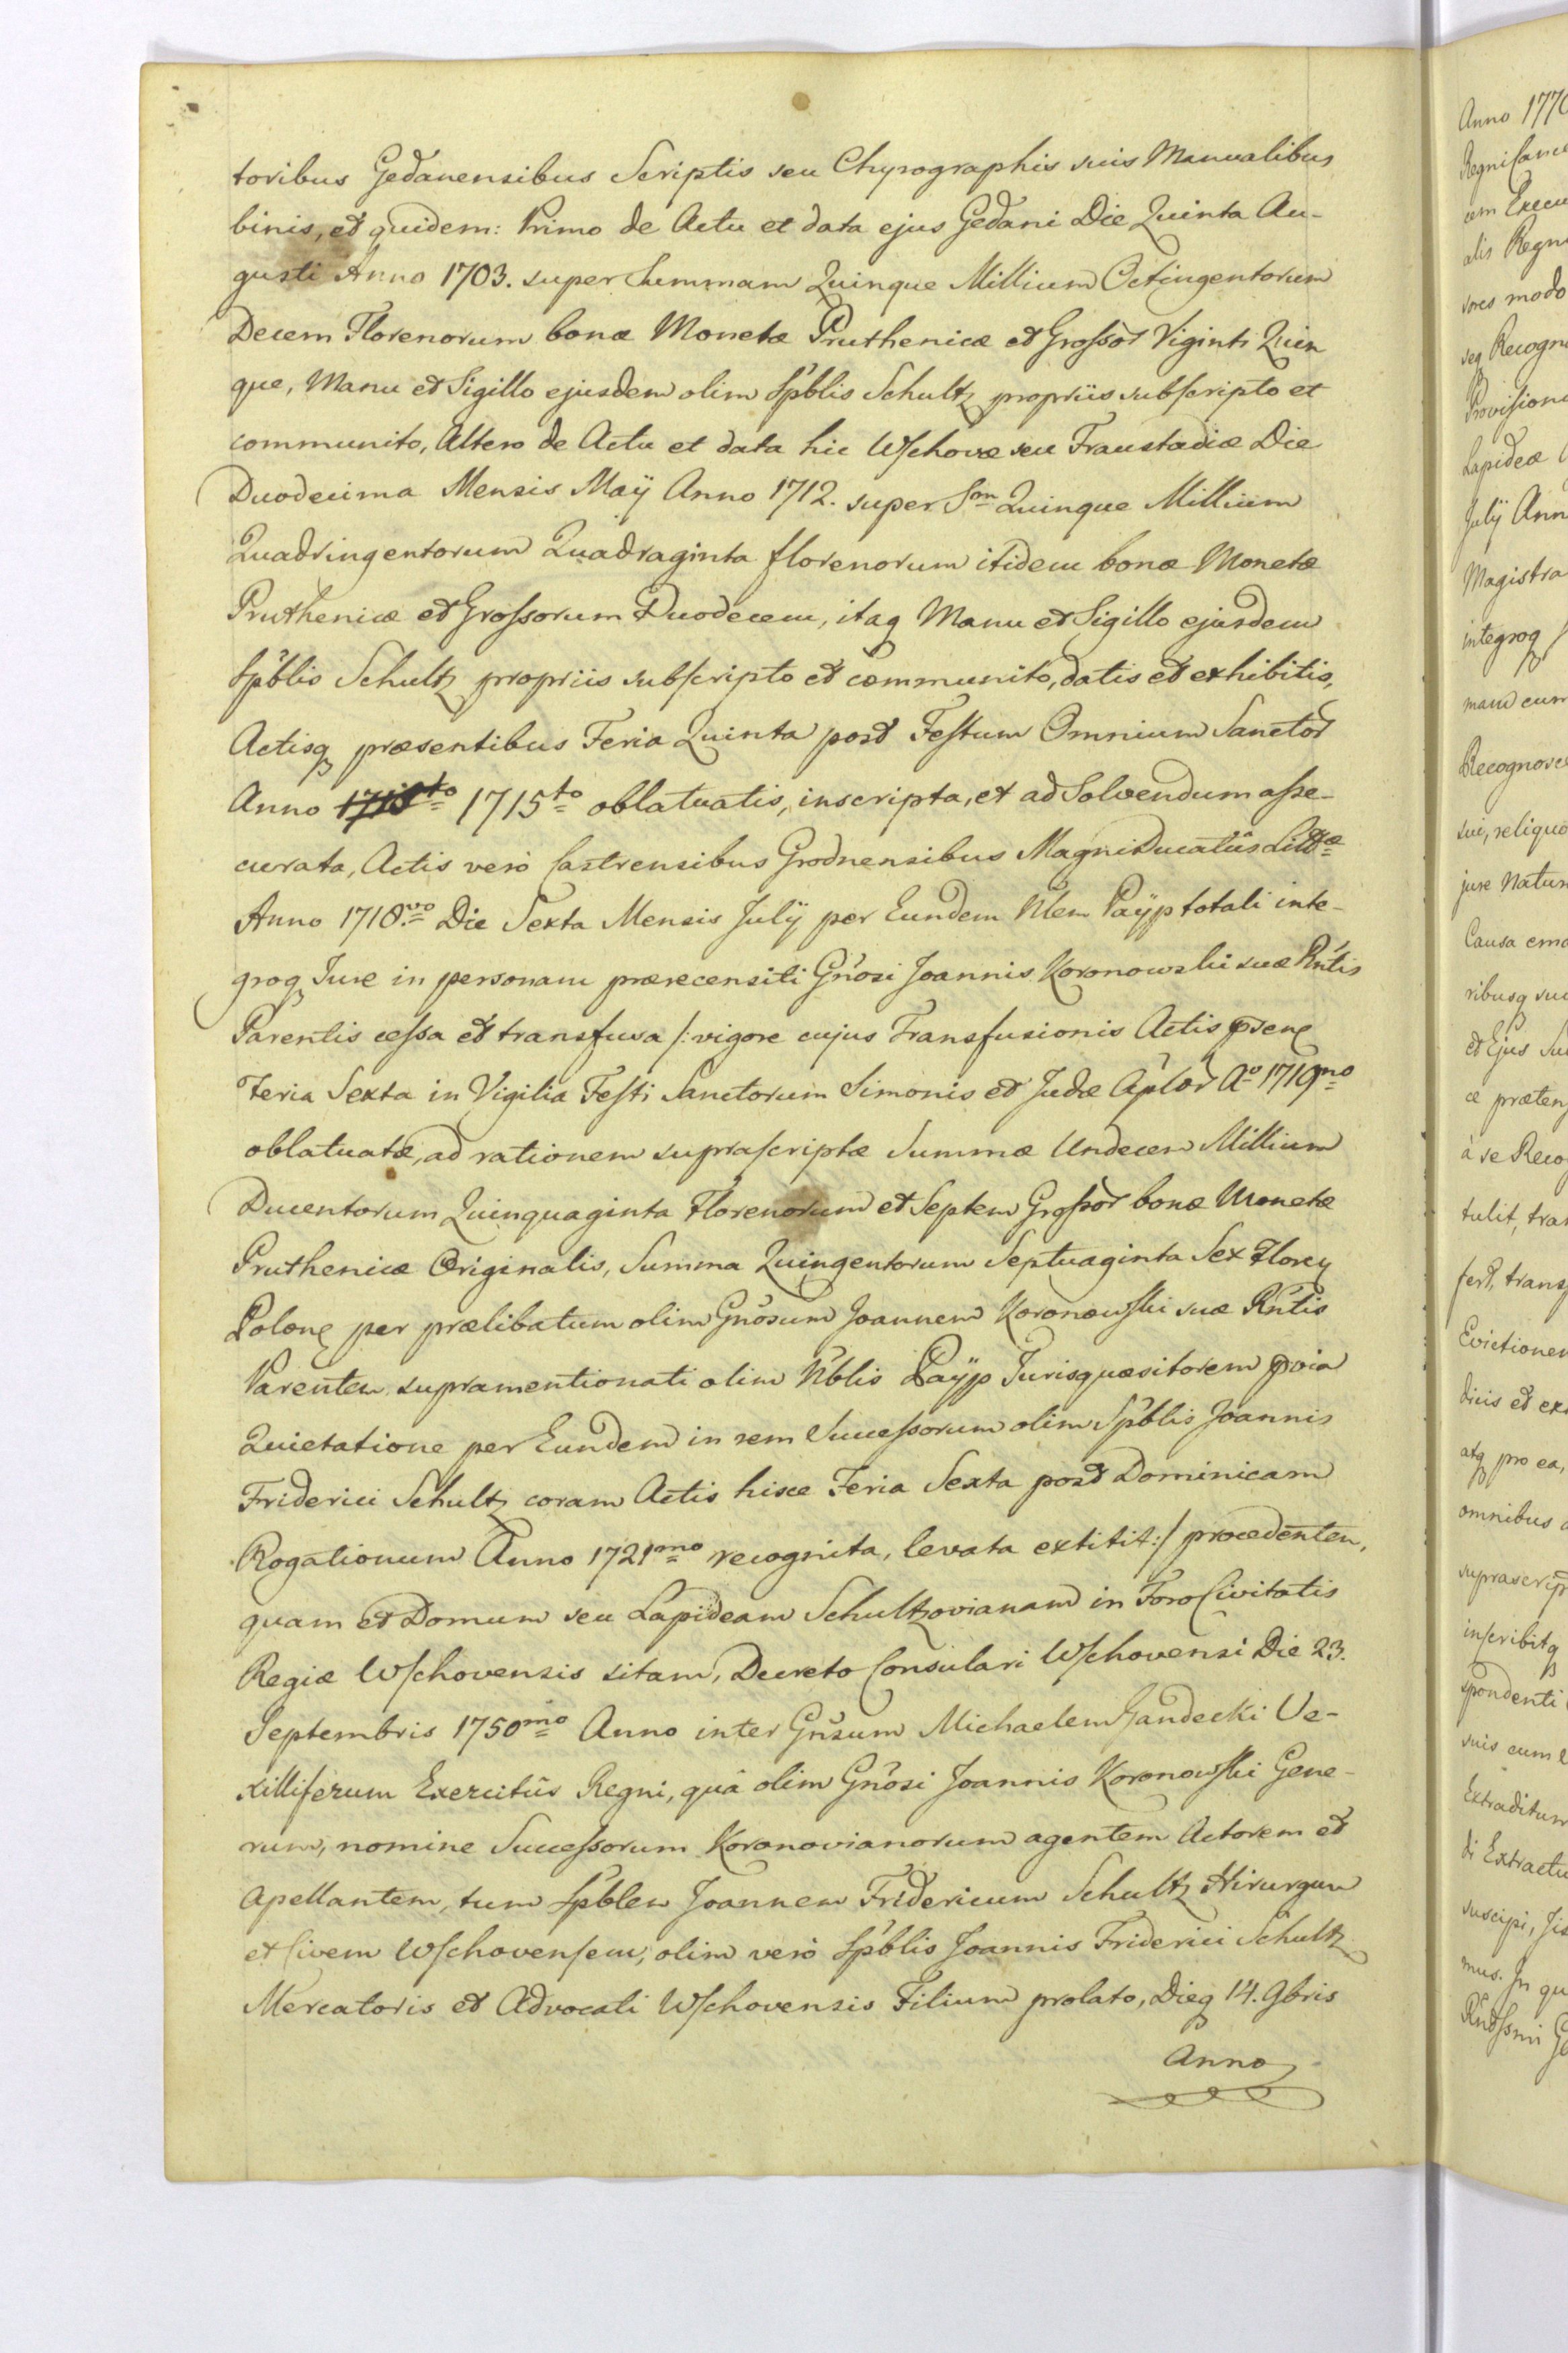 toribus Gedanensibus Scriptis seu Chyrographis suis Manualibus
binis, et quidem: Primo de Actu et data ejus Gedani Die Quinta Au-
gusti Anno 1703. super Summam Quinque Millium Octingentorum
Decem Florenorum bonæ Monetæ Pruthenicæ et Grossor Viginti Quin
que, Manu et Sigillo ejusdem olim Spblis Schultz propriis subscripto et
communito, Altero de Actu et data hic Wschovæ seu Fraustadiæ Die
Duodecima Mensis Maÿ Anno 1712. super Sm̅ Quinque Millium
Quadringentorum Quadraginta florenorum itidem bonæ Monetæ
Pruthenicæ et Grossorum Duodecem, itaq Manu et Sigillo ejusdem
Spblis Schultz propriis subscripto et communito, datis et exhibitis,
Actisq præsentibus Feria Quinta post Festum Omnium Sanctor
Anno 1715to oblatuatis, inscripta, et ad Solvendum asse-
curata, Actis verò Castrensibus Grodnensibus Magni Ducatûs Littæ
Anno 1718.vo Die Sexta Mensis Julÿ per Eundem Nlem Paÿp totali inte-
groq Jure in personam prærecensiti Gnosi Joannis Koronowski suæ Rntis
Parentis cessa et transfusa /: vigore cujus Transfusionis Actis pnsenę
Feria Sexta in Vigilia Festi Sanctorum Simonis et Judæ Aplor Ao 1719no
oblatuatæ, ad rationem suprascriptæ Summæ Undecem Millium
Ducentorum Quinquaginta Florenorum et Septem Grossor bonæ Monetæ
Pruthenicæ Originalis, Summa Quingentorum Septuaginta Sex Floreg
Polonę per prælibatum olim Gnosum Joannem Koronowski suæ Rntis
Parentem supramentionati olim Nblis Paÿp Jurisquæsitorem pvia
Quietatione per Eundem in rem Successorum olim Spblis Joannis
Friderici Schultz coram Actis hisce Feria Sexta post Dominicam
Rogationum Anno 1721mo recognita, levata extitit :/ procedentem,
quam et Domum seu Lapideam Schultzovianam in Foro Civitatis
Regiæ Wschovensis sitam, Decreto Consulari Wschovensi Die 23.
Septembris 1750mo Anno inter Gnsum Michaelem Gandecki Ve-
xilliferum Exercitûs Regni, quâ olim Gnosi Joannis Koronowski Gene-
rum, nomine Successorum Koronovianorum agentem Actorem et
Apellantem, tum Spblem Joannem Fridericum Schultz Hirurgum
et Civem Wschovensem, olim verò Spblis Joannis Friderici Schultz
Mercatoris et Advocati Wschovensis Filium prolato, Dieq 14. 9bris
Anno
Anno 1770